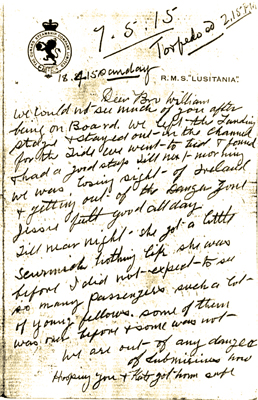 7.5.15
Torpedoed 2.15 P.M.
18.4.15 Sunday
R.M.S. "LUSITANIA".
Dear Bro William
We could not see much of you after
being on Board. We left the Landing
stage & stayed out in the Channel
for the Tide we went to bed & found
& had a good sleep till next morning
we was losing sight of Ireland
& getting out of the Danger Zone
Jessie felt good all day
Till near night she got a little
Seasick nothing like she was
before I did not expect to see
so many passengers such a lot
of young fellows. some of them
was out before & some was not
We are out of any danger
of Submarines now
Hoping you & got home safe